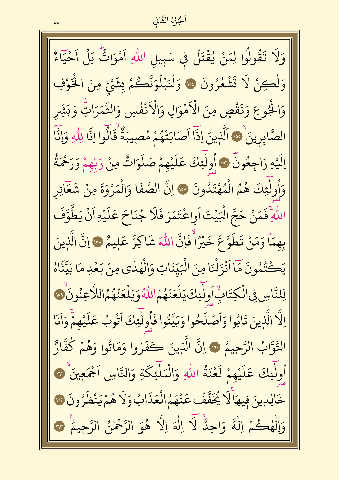 الجزء الثاني
وَلَا تَقُولُوا لِمَنْ يُقْتَلُ فِى سَبِيلِ اللهِ اَمْوَاتٌ بَلْ اَحْيَاءٌ
وَلٰكِنْ لَا تَشْعُرُونَ ۝ وَلَنَبْلُوَنَّكُمْ بِشَىْءٍ مِنَ الْخَوْفِ
وَالْجُوعِ وَنَقْصٍ مِنَ الْاَمْوَالِ وَالْاَنْفُسِ وَالثَّمَرَاتِ وَبَشِّرِ
الصَّابِرِينَ ۝ اَلَّذِينَ اِذَا اَصَابَتْهُمْ مُصِيبَةٌ قَالُوا اِنَّا لِلهِ وَاِنَّا
اِلَيْهِ رَاجِعُونَ ۝ اُولٰئِكَ عَلَيْهِمْ صَلَوَاتٌ مِنْ رَبِّهِمْ وَرَحْمَةٌ
وَاُولٰئِكَ هُمُ الْمُهْتَدُونَ ۝ اِنَّ الصَّفَا وَالْمَرْوَةَ مِنْ شَعَائِرِ
اللهِ فَمَنْ حَجَّ الْبَيْتَ اَوِ اعْتَمَرَ فَلَا جُنَاحَ عَلَيْهِ اَنْ يَطَّوَّفَ
بِهِمَا وَمَنْ تَطَوَّعَ خَيْرًا فَاِنَّ اللهَ شَاكِرٌ عَلِيمٌ ۝ اِنَّ الَّذِينَ
يَكْتُمُونَ مَا اَنْزَلْنَا مِنَ الْبَيِّنَاتِ وَالْهُدٰى مِنْ بَعْدِ مَا بَيَّنَّاهُ
لِلنَّاسِ فِى الْكِتَابِ اُولٰئِكَ يَلْعَنُهُمُ اللهُ وَيَلْعَنُهُمُ اللَّاعِنُونَ ۝
اِلَّا الَّذِينَ تَابُوا وَاَصْلَحُوا وَبَيَّنُوا فَاُولٰئِكَ اَتُوبُ عَلَيْهِمْ وَاَنَا
التَّوَّابُ الرَّحِيمُ ۝ اِنَّ الَّذِينَ كَفَرُوا وَمَاتُوا وَهُمْ كُفَّارٌ
اُولٰئِكَ عَلَيْهِمْ لَعْنَةُ اللهِ وَالْمَلٰئِكَةِ وَالنَّاسِ اَجْمَعِينَ ۝
خَالِدِينَ فِيهَا لَا يُخَفَّفُ عَنْهُمُ الْعَذَابُ وَلَا هُمْ يُنْظَرُونَ ۝
وَاِلٰهُكُمْ اِلٰهٌ وَاحِدٌ لَا اِلٰهَ اِلَّا هُوَ الرَّحْمٰنُ الرَّحِيمُ ۝